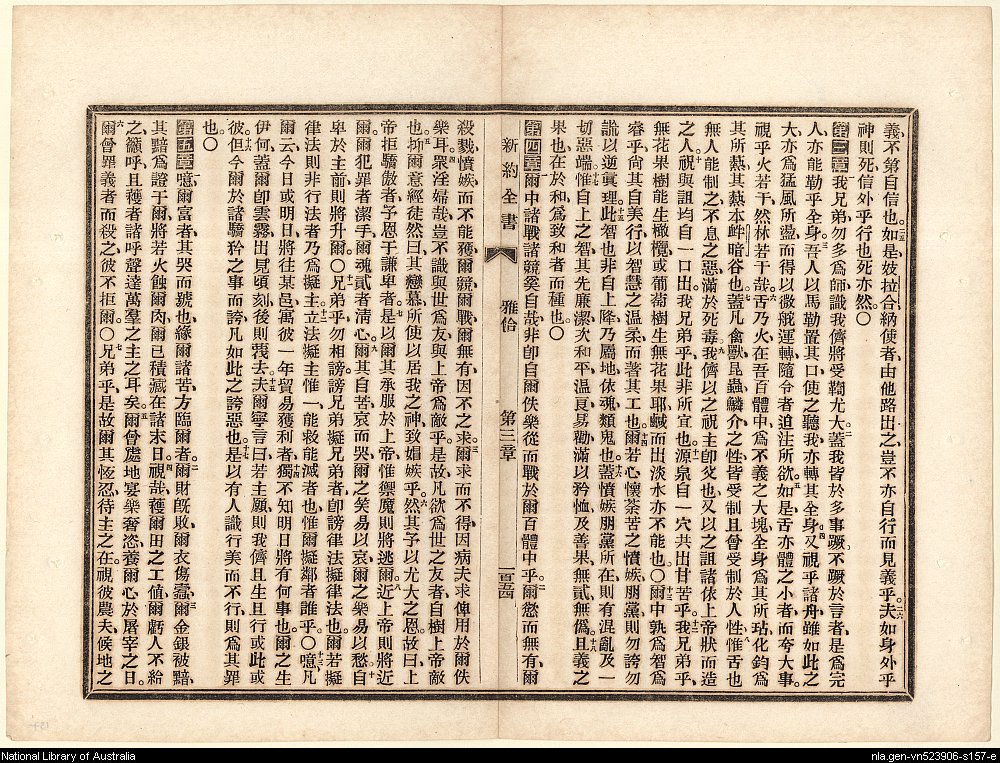 義、不第自信也。二五如是妓拉合、納使者、由他路出之、豈不亦自行而見義乎。二六夫如身外乎
神則死、信外乎行也死亦然。〇
第三章 我兄弟、勿多爲師、識我儕將受鞫尤大。二蓋我皆於多事蹶、不蹶於言者、是爲完
人、亦能勒乎全身。三吾人以馬勒置其口、使之聽我、亦轉其全身。四又視乎諸舟、雖如此之
大、亦爲猛風所盪、而得以微舵運轉、隨令者廹注所欲。五如是舌亦體之小者、而夸大事、
視乎火若干、然林若干哉。六舌乃火、在吾百體中、爲不義之大塊、全身爲其所玷、化鈞爲
其所熱、其熱本衅暗谷也。七蓋凡禽獸昆蟲鱗介之性、皆受制且曾受制於人性、八惟舌也
無人能制之、不息之惡、滿於死毒、九我儕以之祝主卽父也、又以之詛諸依上帝狀而造
之人、十祝與詛均自一口出、我兄弟乎、此非所宜也。十一源泉自一穴、共出甘苦乎。十二我兄弟乎、
無花果樹能生橄欖、或葡萄樹生無花果耶、鹹而出淡水亦不能也。〇十三爾中孰爲智爲
睿乎、尙其自美行、以智慧之温柔、而著其工也。十四爾若心懷荼苦之憤嫉朋黨、則勿誇勿
謊以逆眞理。十五此智也非自上降、乃屬地依魂類鬼也。十六蓋憤嫉朋黨所在、則有混亂及一
切惡端。十七惟自上之智、其先廉潔、次和平、温良、易勸、滿以矜恤及善果、無貳、無僞。十八且義之
果也、在於和、爲致和者而種也。〇
第四章 爾中諸戰諸競奚自哉、非卽自爾佚樂從而戰於爾百體中乎。二爾慾而無有、爾
新約全書
雅佮
第三章
一百五四
殺戮憤嫉而不能獲、爾競爾戰、爾無有、因不之求。三爾求而不得、因病夫求、俾用於爾佚
樂耳。四衆淫婦哉、豈不識與世爲友、與上帝爲敵乎、是故凡欲爲世之友者、自樹上帝敵
也。五抑爾意經徒然曰、其戀慕所使以居我之神、致媢嫉乎。六然其予以尤大之恩、故曰、上
帝拒驕傲者、予恩于謙卑者。七是以爾其承服於上帝、惟禦魔、則將逃爾。八近上帝、則將近
爾、爾犯罪者潔手、爾魂貳者淸心。九爾其自苦哀而哭、爾之笑易以哀、爾之樂易以愁。十自
卑於主前、則將升爾。〇十一兄弟乎、勿相謗、謗兄弟擬兄弟者、卽謗律法擬律法也、爾若擬
律法、則非行法者、乃爲擬主、十二立法擬主惟一、能救能滅者也、惟爾擬鄰者誰乎。〇十三噫、凡
爾云、今日或明日將往某邑、寓彼一年、貿易獲利者、十四獨不知明日將有何事也、爾之生
伊何、蓋爾卽雲霧、出見頃刻、後則散去。十五夫爾寧言曰、若主願、則我儕且生且行、或此或
彼。十六但今爾於諸驕矜之事而誇、凡如此之誇惡也。十七是以有人識行美而不行、則爲其罪
也。〇
第五章 噫、爾富者、其哭而號也、緣爾諸苦方臨爾者。二爾財旣敗、爾衣傷蠧、三爾金銀被黯、
其黯爲證于爾、將若火蝕爾肉、爾已積藏在諸末日。四視哉、穫爾田之工値、爾虧人不給
之、籲呼、且穫者諸呼聲、達萬羣之主之耳矣。五爾曾處地宴樂奢恣、養爾心於屠宰之日。
六爾曾罪義者而殺之、彼不拒爾。〇七兄弟乎、是故爾其恆忍、待主之在、視彼農夫、候地之
National Library of Australia
nla.gen-vn523906-s157-e